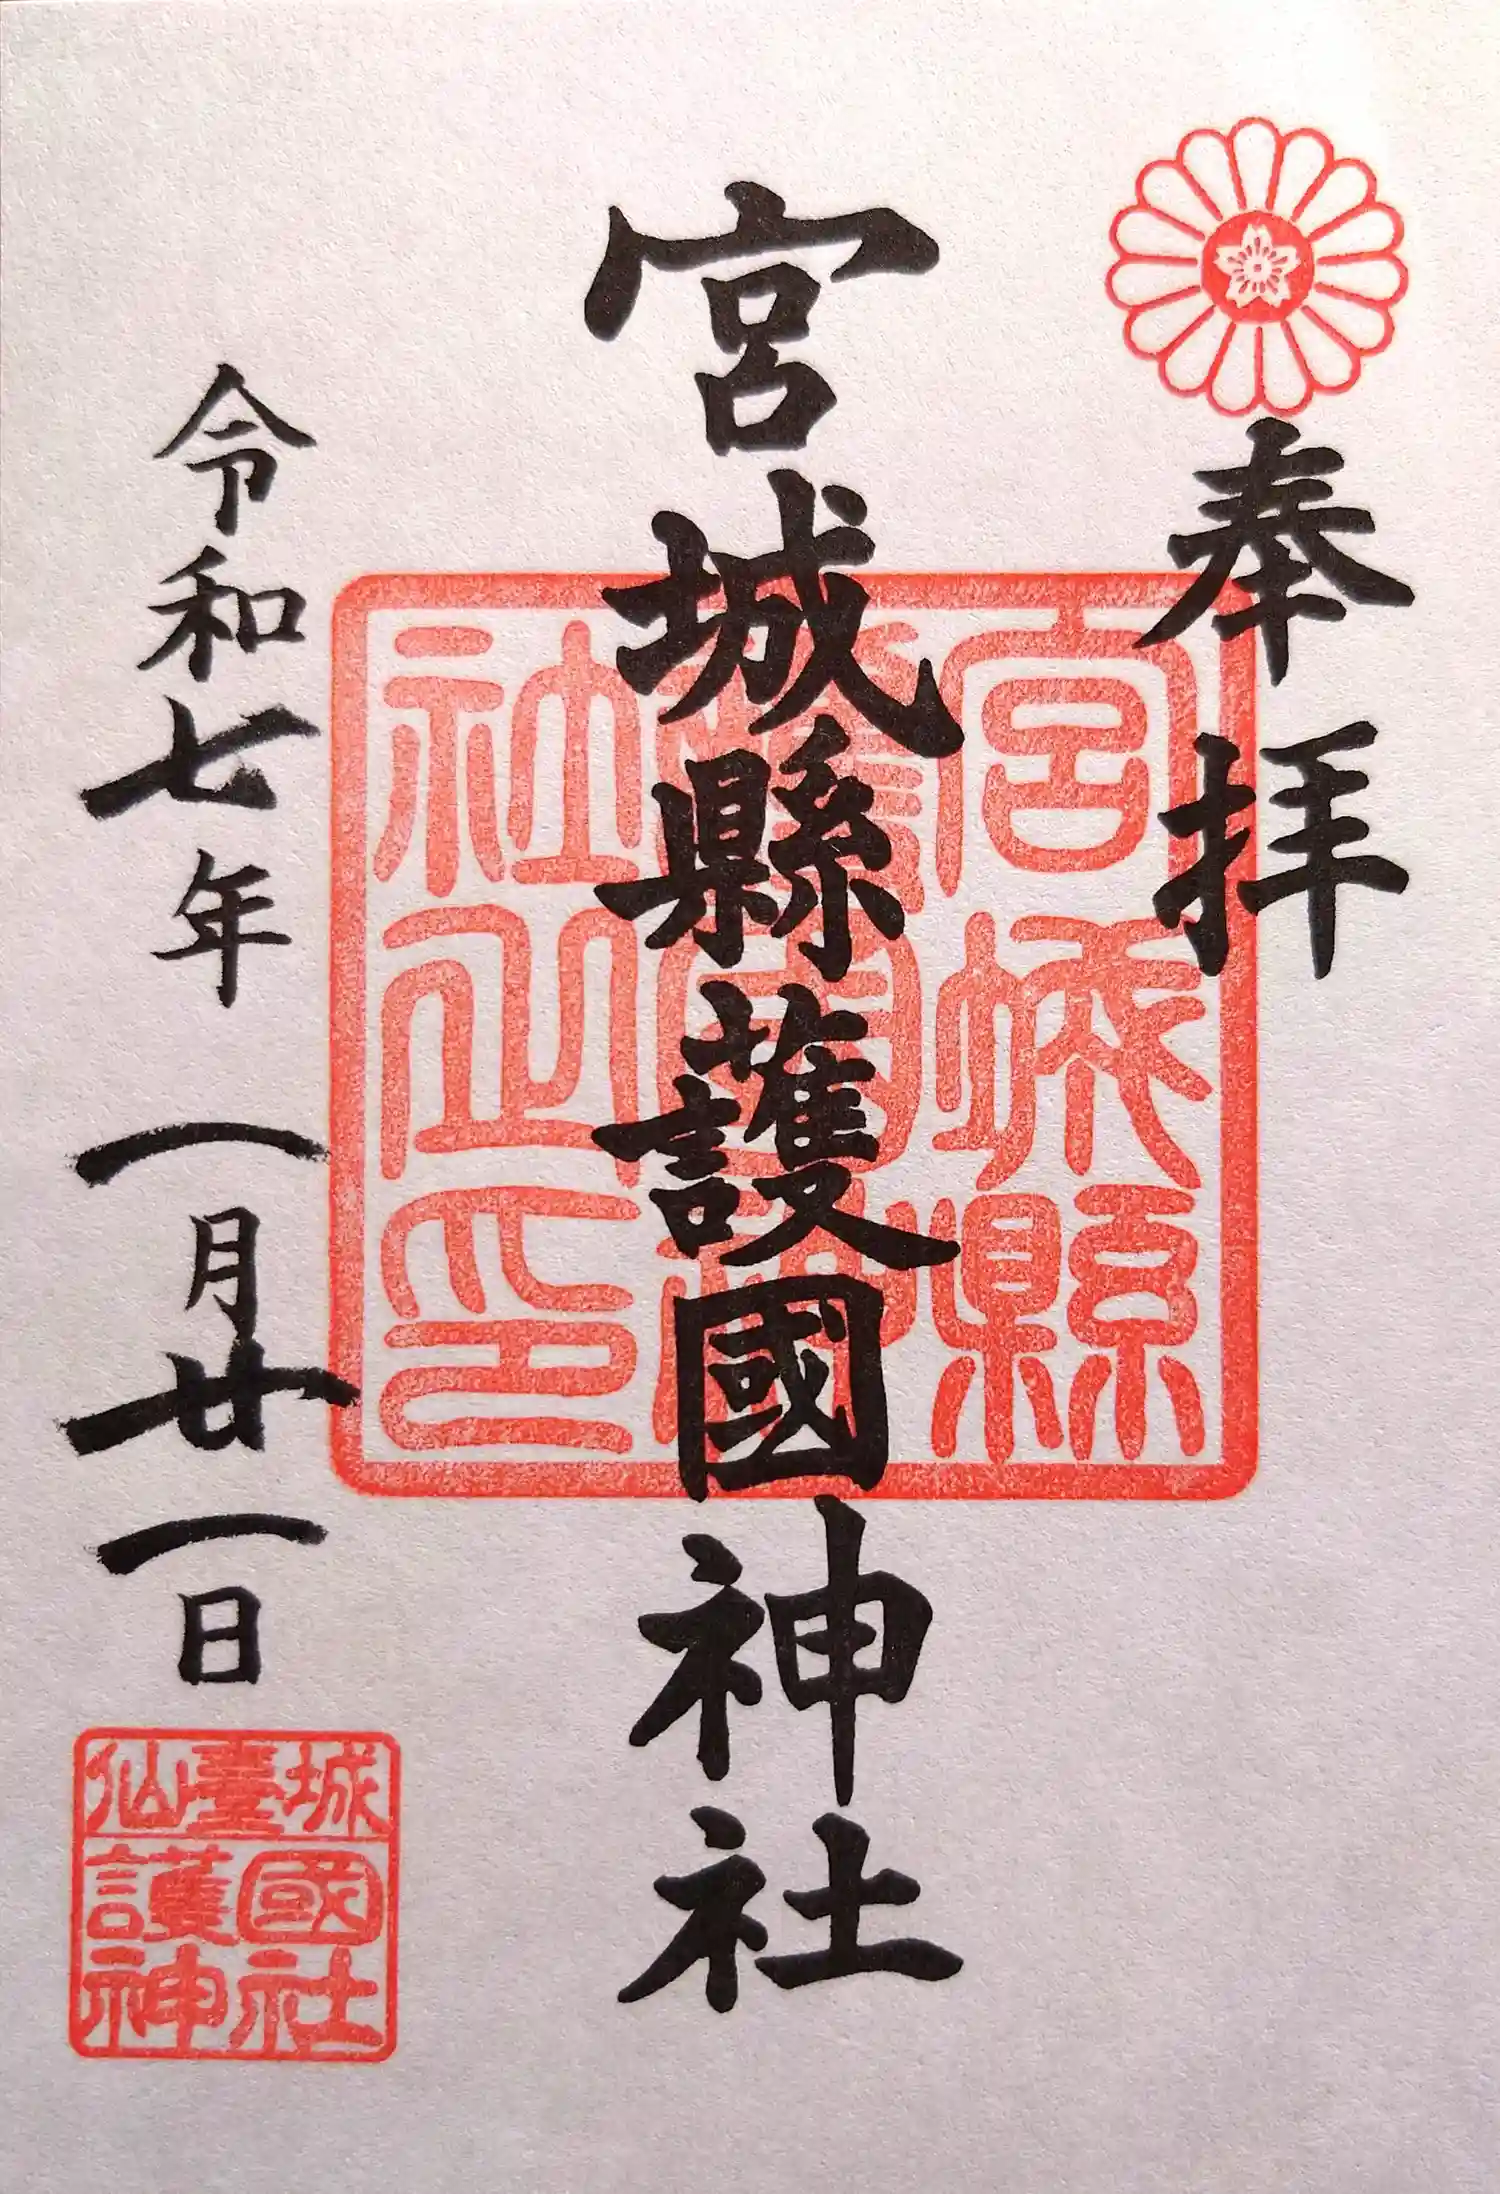 奉拝
宮城縣護國神社
令和七年一月廿一日
宮城縣
護國神
社之印
仙臺城
護國
神社